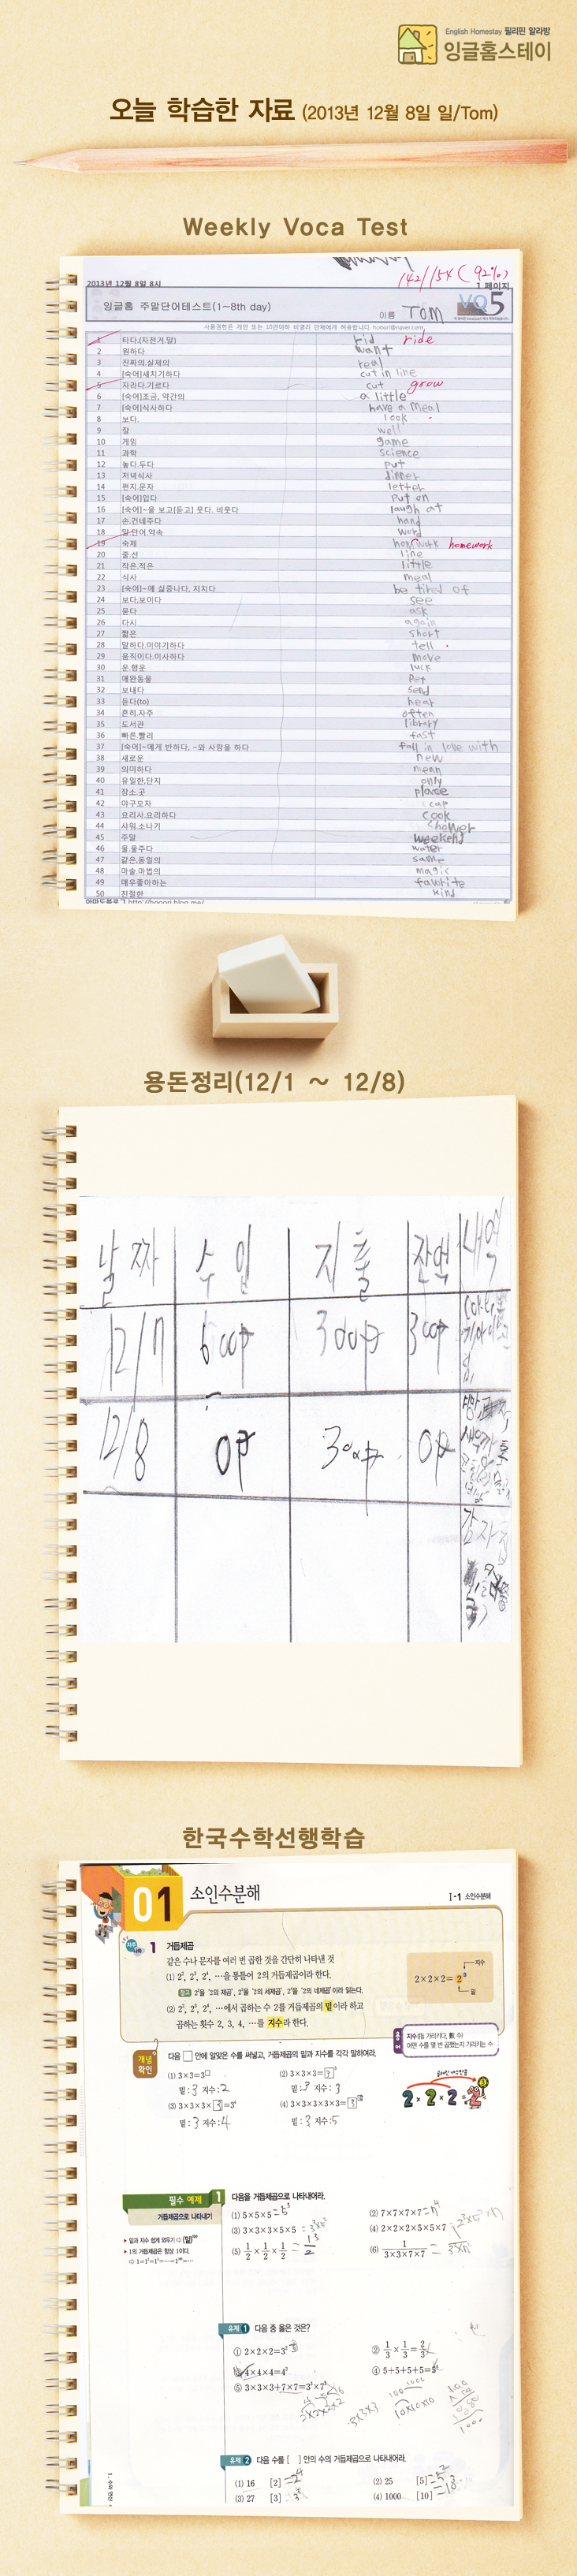 English Homestay 필리핀 알라방
잉글홈스테이
오늘 학습한 자료 (2013년 12월 8일 일/Tom)
Weekly Voca Test
142/154 ( 92%)
2013년 12월 8일 8시
1 페이지
잉글홈 주말단어테스트(1~8th day)
이름 Tom
VO 5
1 타다.(자전거.말) rid ride
2 원하다 want
3 진짜의.실제의 real
4 [숙어]새치기하다 cut in line
5 자라다.기르다 cut grow
6 [숙어]조금, 약간의 a little
7 [숙어]식사하다 have a meal
8 보다. look
9 잘 well
10 게임 game
11 과학 science
12 놓다.두다 put
13 저녁식사 dinner
14 편지.문자 letter
15 [숙어]입다 put on
16 [숙어]~을 보고[듣고] 웃다. 비웃다 laugh at
17 손.건네주다 hand
18 말.단어.약속 word
19 숙제 homwork homework
20 줄.선 line
21 작은.적은 little
22 식사 meal
23 [숙어]~에 싫증나다, 지치다 be tired of
24 보다.보이다 see
25 묻다 ask
26 다시 again
27 짧은 short
28 말하다.이야기하다 tell
29 움직이다.이사하다 move
30 운.행운 luck
31 애완동물 pet
32 보내다 send
33 듣다(to) hear
34 흔히.자주 often
35 도서관 library
36 빠른.빨리 fast
37 [숙어]~에게 반하다, ~와 사랑을 하다 fall in love with
38 새로운 new
39 의미하다 mean
40 유일한,단지 only
41 장소.곳 place
42 야구모자 cap
43 요리사.요리하다 cook
44 샤워.소나기 shower
45 주말 weekend
46 물.물주다 water
47 같은,동일의 same
48 마술.마법의 magic
49 매우좋아하는 favorite
50 친절한 kind
용돈정리(12/1 ~ 12/8)
날짜 수입 지출 잔액 내역
12/7 600P 300P 300P
12/8 0P 300P 0P
한국수학선행학습
01 소인수분해
Ⅰ-1 소인수분해
1 거듭제곱
같은 수나 문자를 여러 번 곱한 것을 간단히 나타낸 것
(1) 2², 2³, 2⁴, …을 통틀어 2의 거듭제곱이라 한다.
참고 2²을 '2의 제곱', 2³을 '2의 세제곱', 2⁴을 '2의 네제곱'이라 읽는다.
(2) 2², 2³, 2⁴, …에서 곱하는 수 2를 거듭제곱의 밑이라 하고
곱하는 횟수 2, 3, 4, …를 지수라 한다.
지수
2×2×2=2³
밑
용어
지수(指 가리키다, 數 수)
어떤 수를 몇 번 곱했는지 가리키는 수
개념 확인
다음 □ 안에 알맞은 수를 써넣고, 거듭제곱의 밑과 지수를 각각 말하여라.
(1) 3×3=3□
(2) 3×3×3=3³
밑: 3 지수: 2
밑: 3 지수: 3
(3) 3×3×3×3=3⁴
(4) 3×3×3×3×3=3
밑: 3 지수: 4
밑: 3 지수: 5
2 × 2 × 2 = 2
필수 예제 1
거듭제곱으로 나타내기
다음을 거듭제곱으로 나타내어라.
(1) 5×5×5 =5³
(2) 7×7×7×7 =7⁴
(3) 3×3×3×5×5 =3³×5²
(4) 2×2×2×5×5×7
(5) 1/2×1/2×1/2
(6) 1/3×3×7×7
▸ 밑과 지수 쉽게 외우기
▸ 1의 거듭제곱은 항상 1이다.
유제 1 다음 중 옳은 것은?
① 2×2×2=3²
② 1/3×1/3=2/3
③ 4×4×4=4³
④ 5+5+5+5=5⁴
⑤ 3×3×3+7×7=3³×7²
2×2×2×2
3×3×3
10×10×10
유제 2 다음 수를 [ ] 안의 수의 거듭제곱으로 나타내어라.
(1) 16 [2] =2⁴
(2) 25 [5] =5²
(3) 27 [3] 3³
(4) 1000 [10] =10³